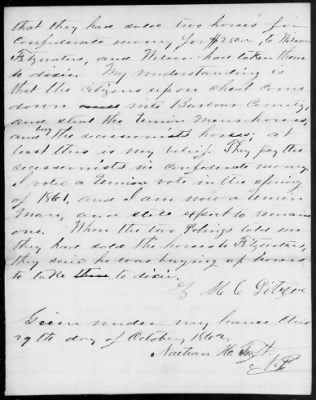 that they had sold two horses for
confederate money, for $250, to Wilson
Fitzwaters, and Wilson had taken them
to dixie. My understanding is
that the citizens upon Cheat come
down into Barbour County,
and steal the Union mens horses,
and buy the secessionists horses; at
least this is my belief. They pay the
secessionists in confederate money.
I voted a Union vote in the spring
of 1861, and I am now a Union
man, and still expect to remain
one. When the two Polings told me
they had sold the horses to Fitzwaters,
they said he was buying up horses
to take to dixie.
M. C.
Given under my hand this
29 th day of October, 1862.
Nathan H.
J.P.